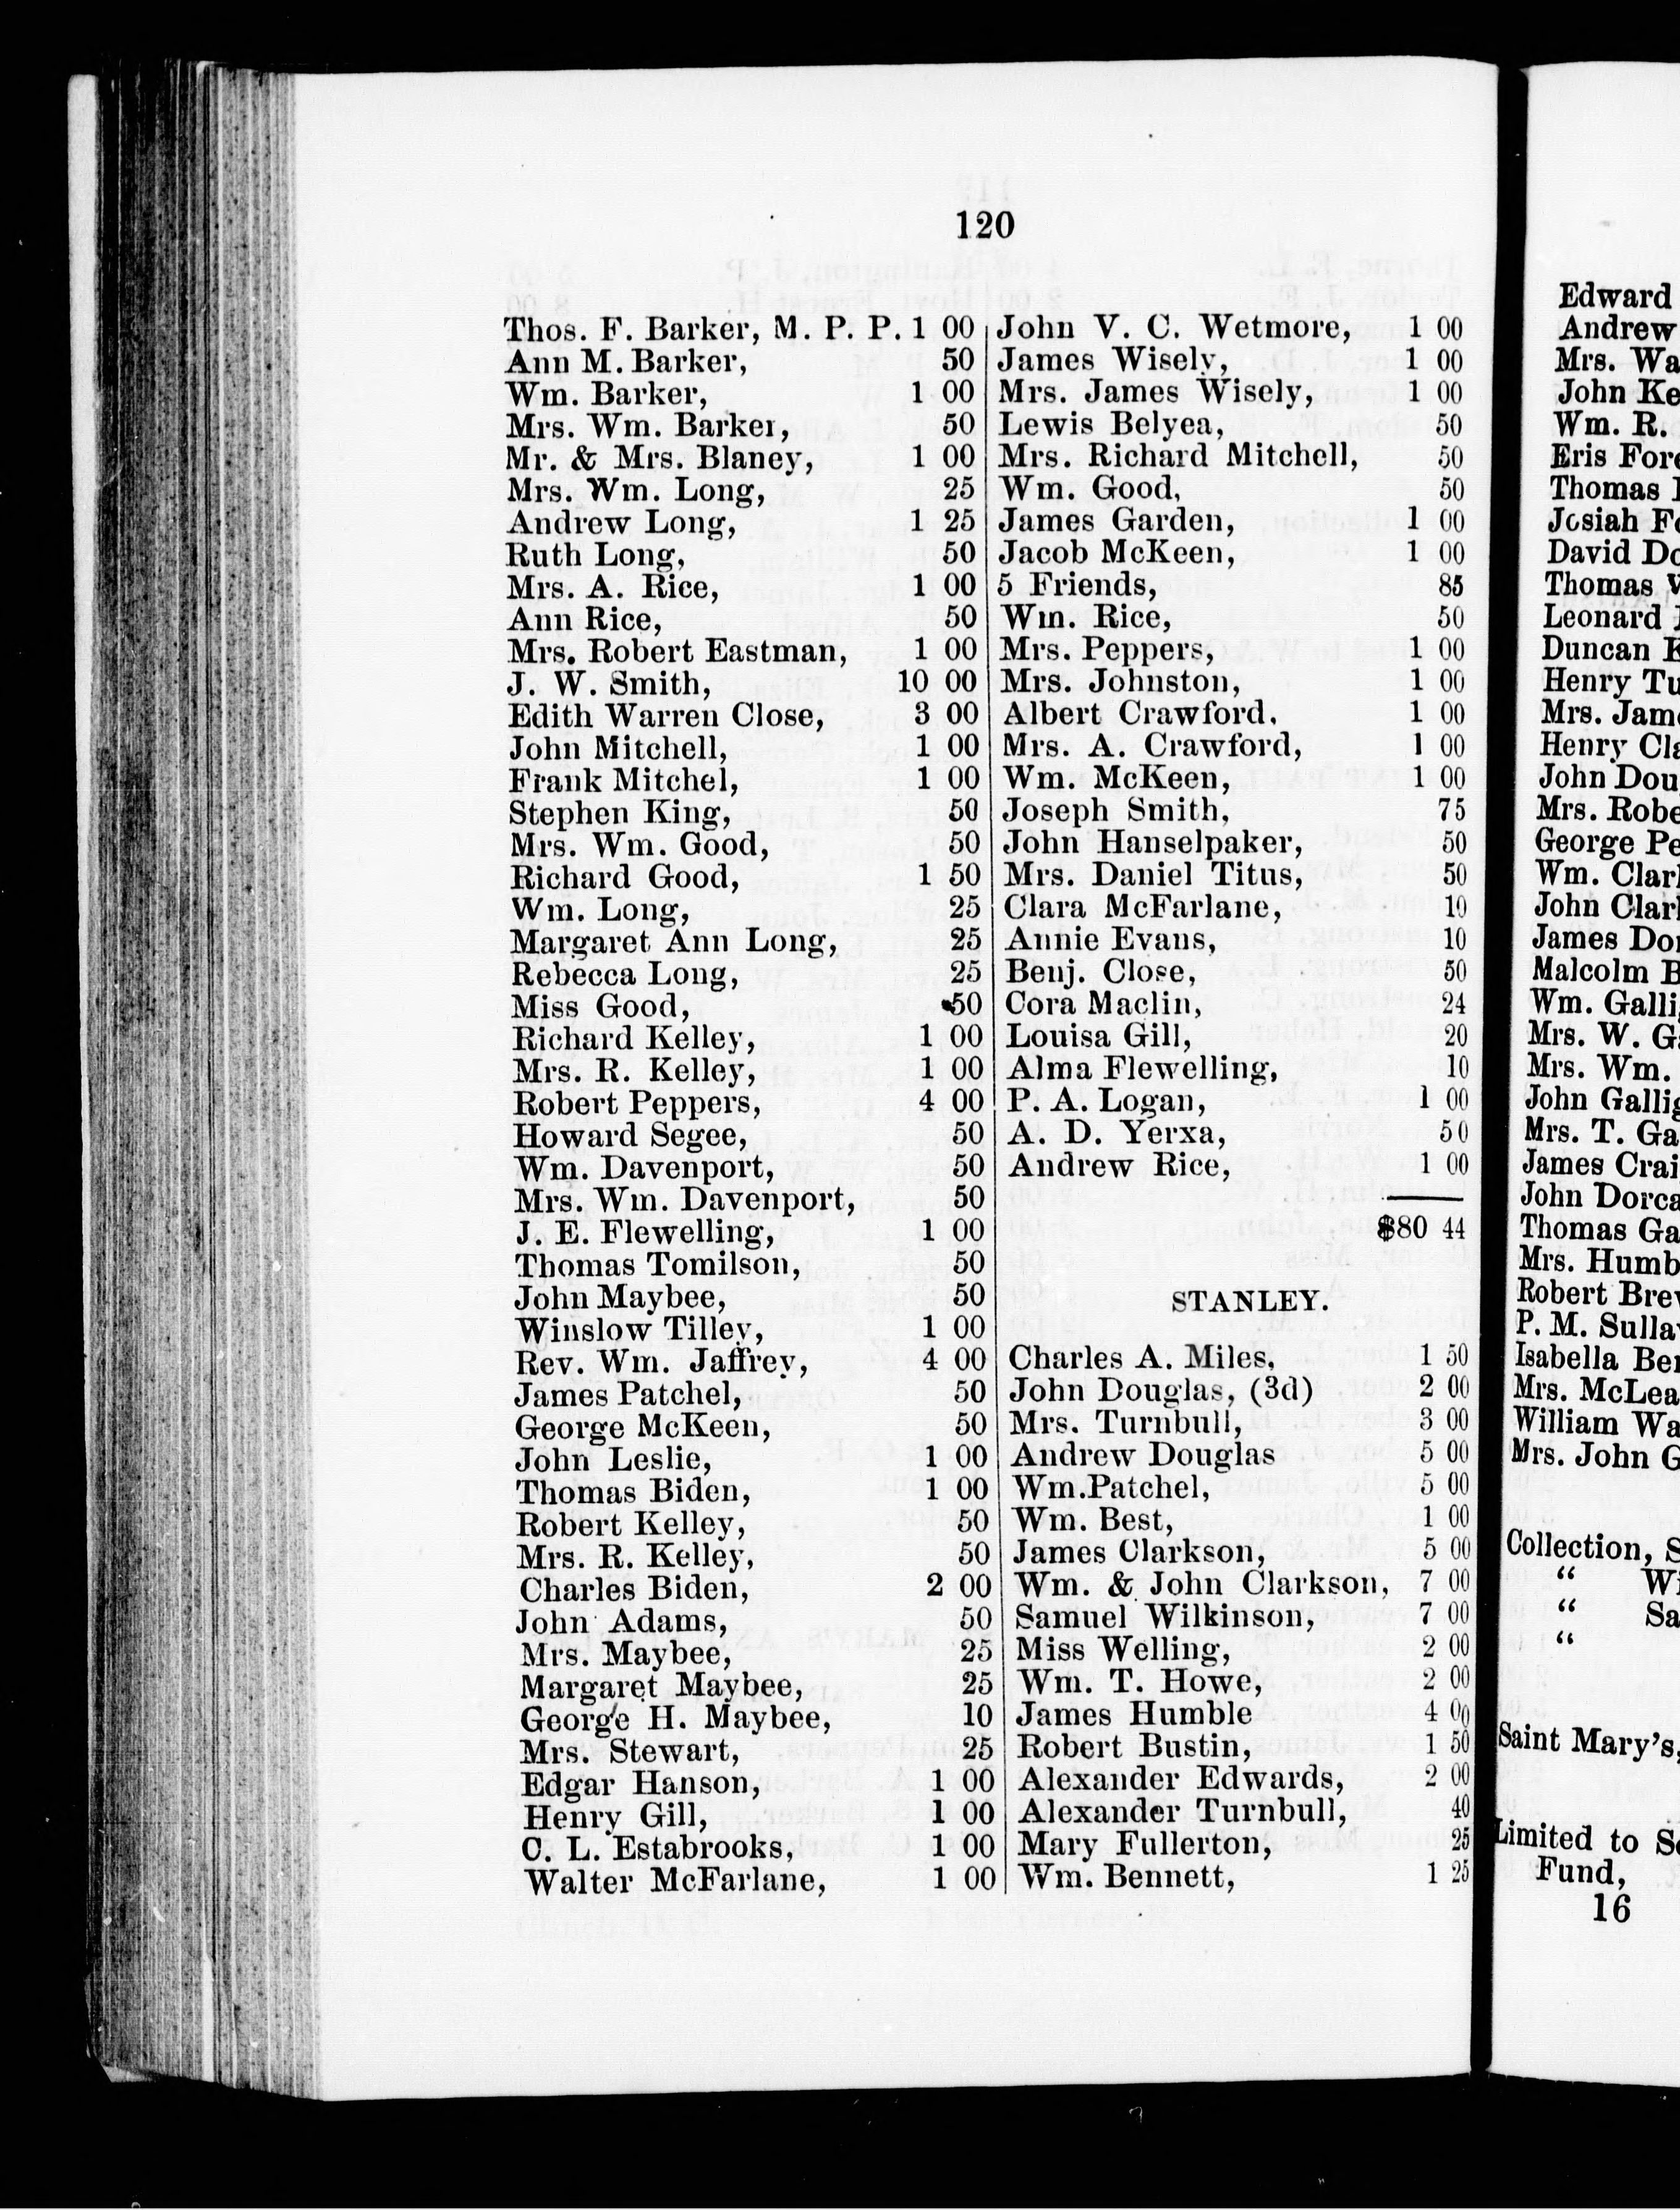 120
Thos. F. Barker, M. P. P. 1 00
Ann M. Barker, 50
Wm. Barker, 1 00
Mrs. Wm. Barker, 50
Mr. & Mrs. Blaney, 1 00
Mrs. Wm. Long, 25
Andrew Long, 1 25
Ruth Long, 50
Mrs. A. Rice, 1 00
Ann Rice, 50
Mrs. Robert Eastman, 1 00
J. W. Smith, 10 00
Edith Warren Close, 3 00
John Mitchell, 1 00
Frank Mitchel, 1 00
Stephen King, 50
Mrs. Wm. Good, 50
Richard Good, 1 50
Wm. Long, 25
Margaret Ann Long, 25
Rebecca Long, 25
Miss Good, 50
Richard Kelley, 1 00
Mrs. R. Kelley, 1 00
Robert Peppers, 4 00
Howard Segee, 50
Wm. Davenport, 50
Mrs. Wm. Davenport, 50
J. E. Flewelling, 1 00
Thomas Tomilson, 50
John Maybee, 50
Winslow Tilley, 1 00
Rev. Wm. Jaffrey, 4 00
James Patchel, 50
George McKeen, 50
John Leslie, 1 00
Thomas Biden, 1 00
Robert Kelley, 50
Mrs. R. Kelley, 50
Charles Biden, 2 00
John Adams, 50
Mrs. Maybee, 25
Margaret Maybee, 25
George H. Maybee, 10
Mrs. Stewart, 25
Edgar Hanson, 1 00
Henry Gill, 1 00
C. L. Estabrooks, 1 00
Walter McFarlane, 1 00
John V. C. Wetmore, 1 00
James Wisely, 1 00
Mrs. James Wisely, 1 00
Lewis Belyea, 50
Mrs. Richard Mitchell, 50
Wm. Good, 50
James Garden, 1 00
Jacob McKeen, 1 00
5 Friends, 85
Wm. Rice, 50
Mrs. Peppers, 1 00
Mrs. Johnston, 1 00
Albert Crawford. 1 00
Mrs. A. Crawford, 1 00
Wm. McKeen, 1 00
Joseph Smith, 75
John Hanselpaker, 50
Mrs. Daniel Titus, 50
Clara McFarlane, 10
Annie Evans, 10
Benj. Close, 50
Cora Maclin, 24
Louisa Gill, 20
Alma Flewelling, 10
P. A. Logan, 1 00
A. D. Yerxa, 50
Andrew Rice, 1 00
$80 44
STANLEY.
Charles A. Miles, 1 50
John Douglas, (3d) 2 00
Mrs. Turnbull, 3 00
Andrew Douglas 5 00
Wm. Patchel, 5 00
Wm. Best, 1 00
James Clarkson, 5 00
Wm. & John Clarkson, 7 00
Samuel Wilkinson, 7 00
Miss Welling, 2 00
Wm. T. Howe, 2 00
James Humble 4 00
Robert Bustin, 1 50
Alexander Edwards, 2 00
Alexander Turnbull, 40
Mary Fullerton, 25
Wm. Bennett, 1 25
Edward
Andrew
Mrs.
John
Wm. R.
Eris
Thomas
Josiah
David
Thomas
Leonard
Duncan
Henry
Mrs.
Henry
John
Mrs.
George
Wm.
John
James
Malcolm
Wm.
Mrs. W.
Mrs. Wm.
John
Mrs. T.
James
John
Thomas
Mrs.
Robert
P. M.
Isabella
Mrs.
William
Mrs. John
Collection,
“
“
“
Saint Mary's,
Limited to
Fund,
16